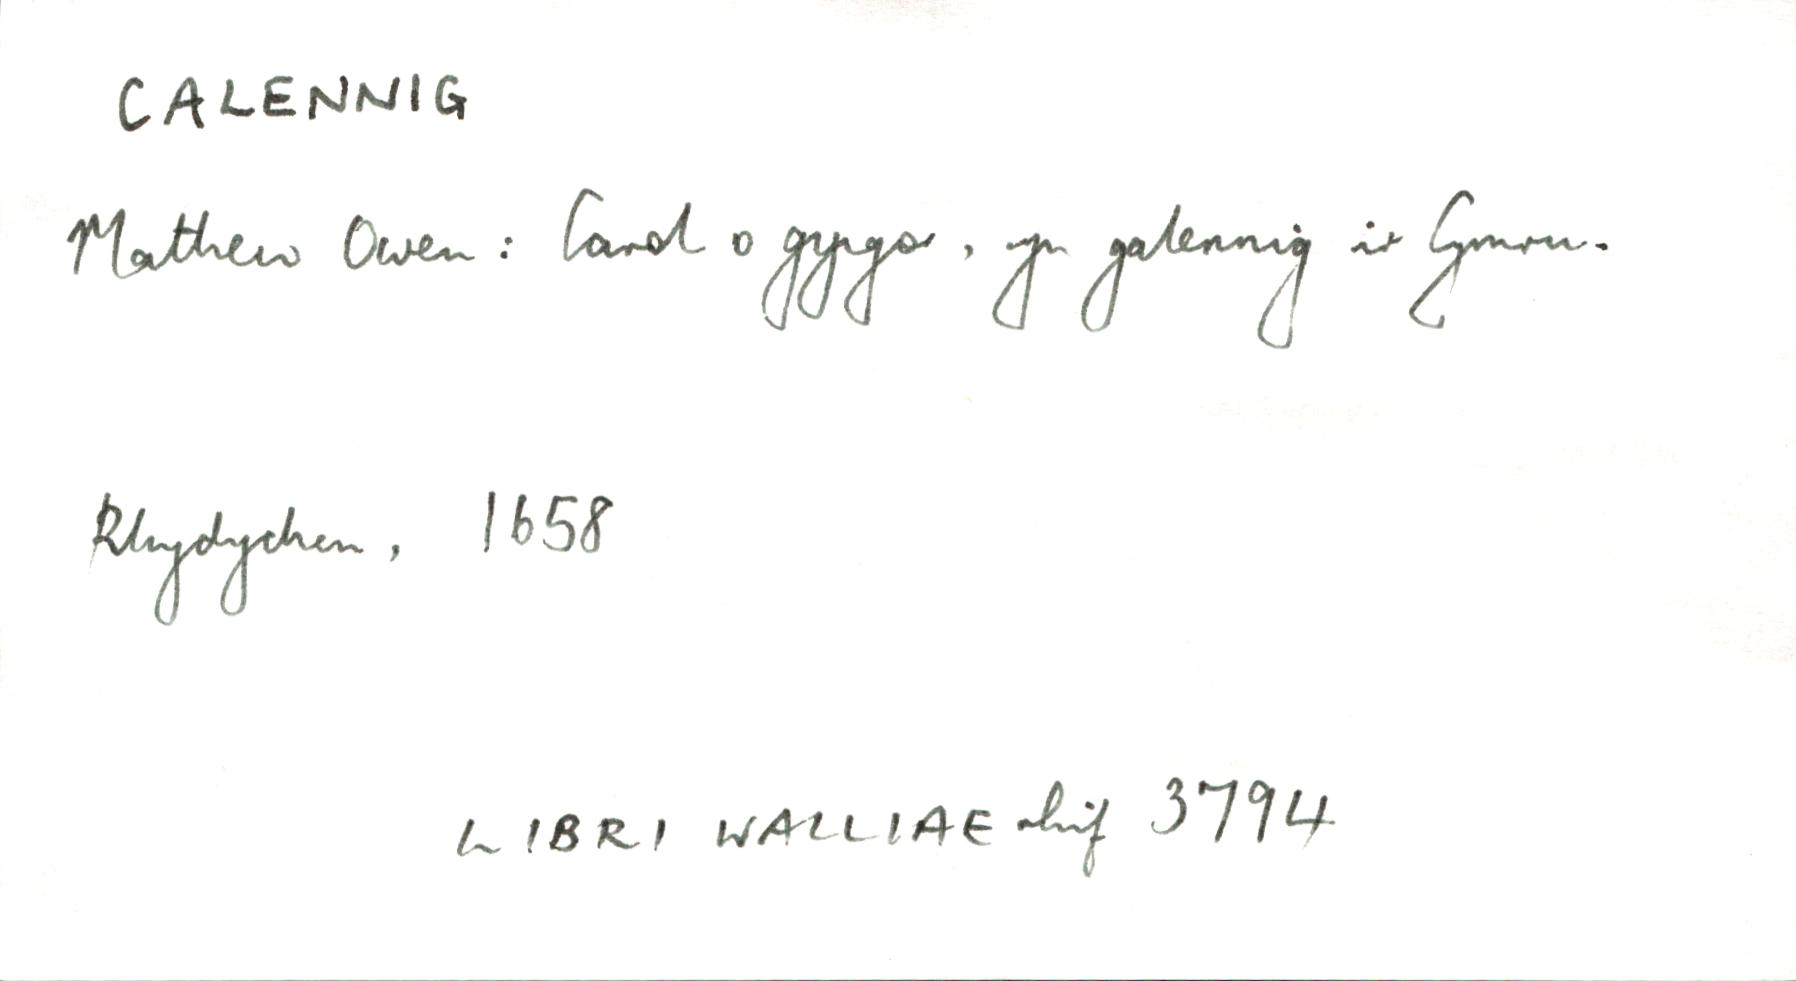 CALENNIG
Mathew Owen: Carol o gyngor, yn galennig ir Cymru.
Rhydychen, 1658
LIBRI WALLIAE rhif 3794